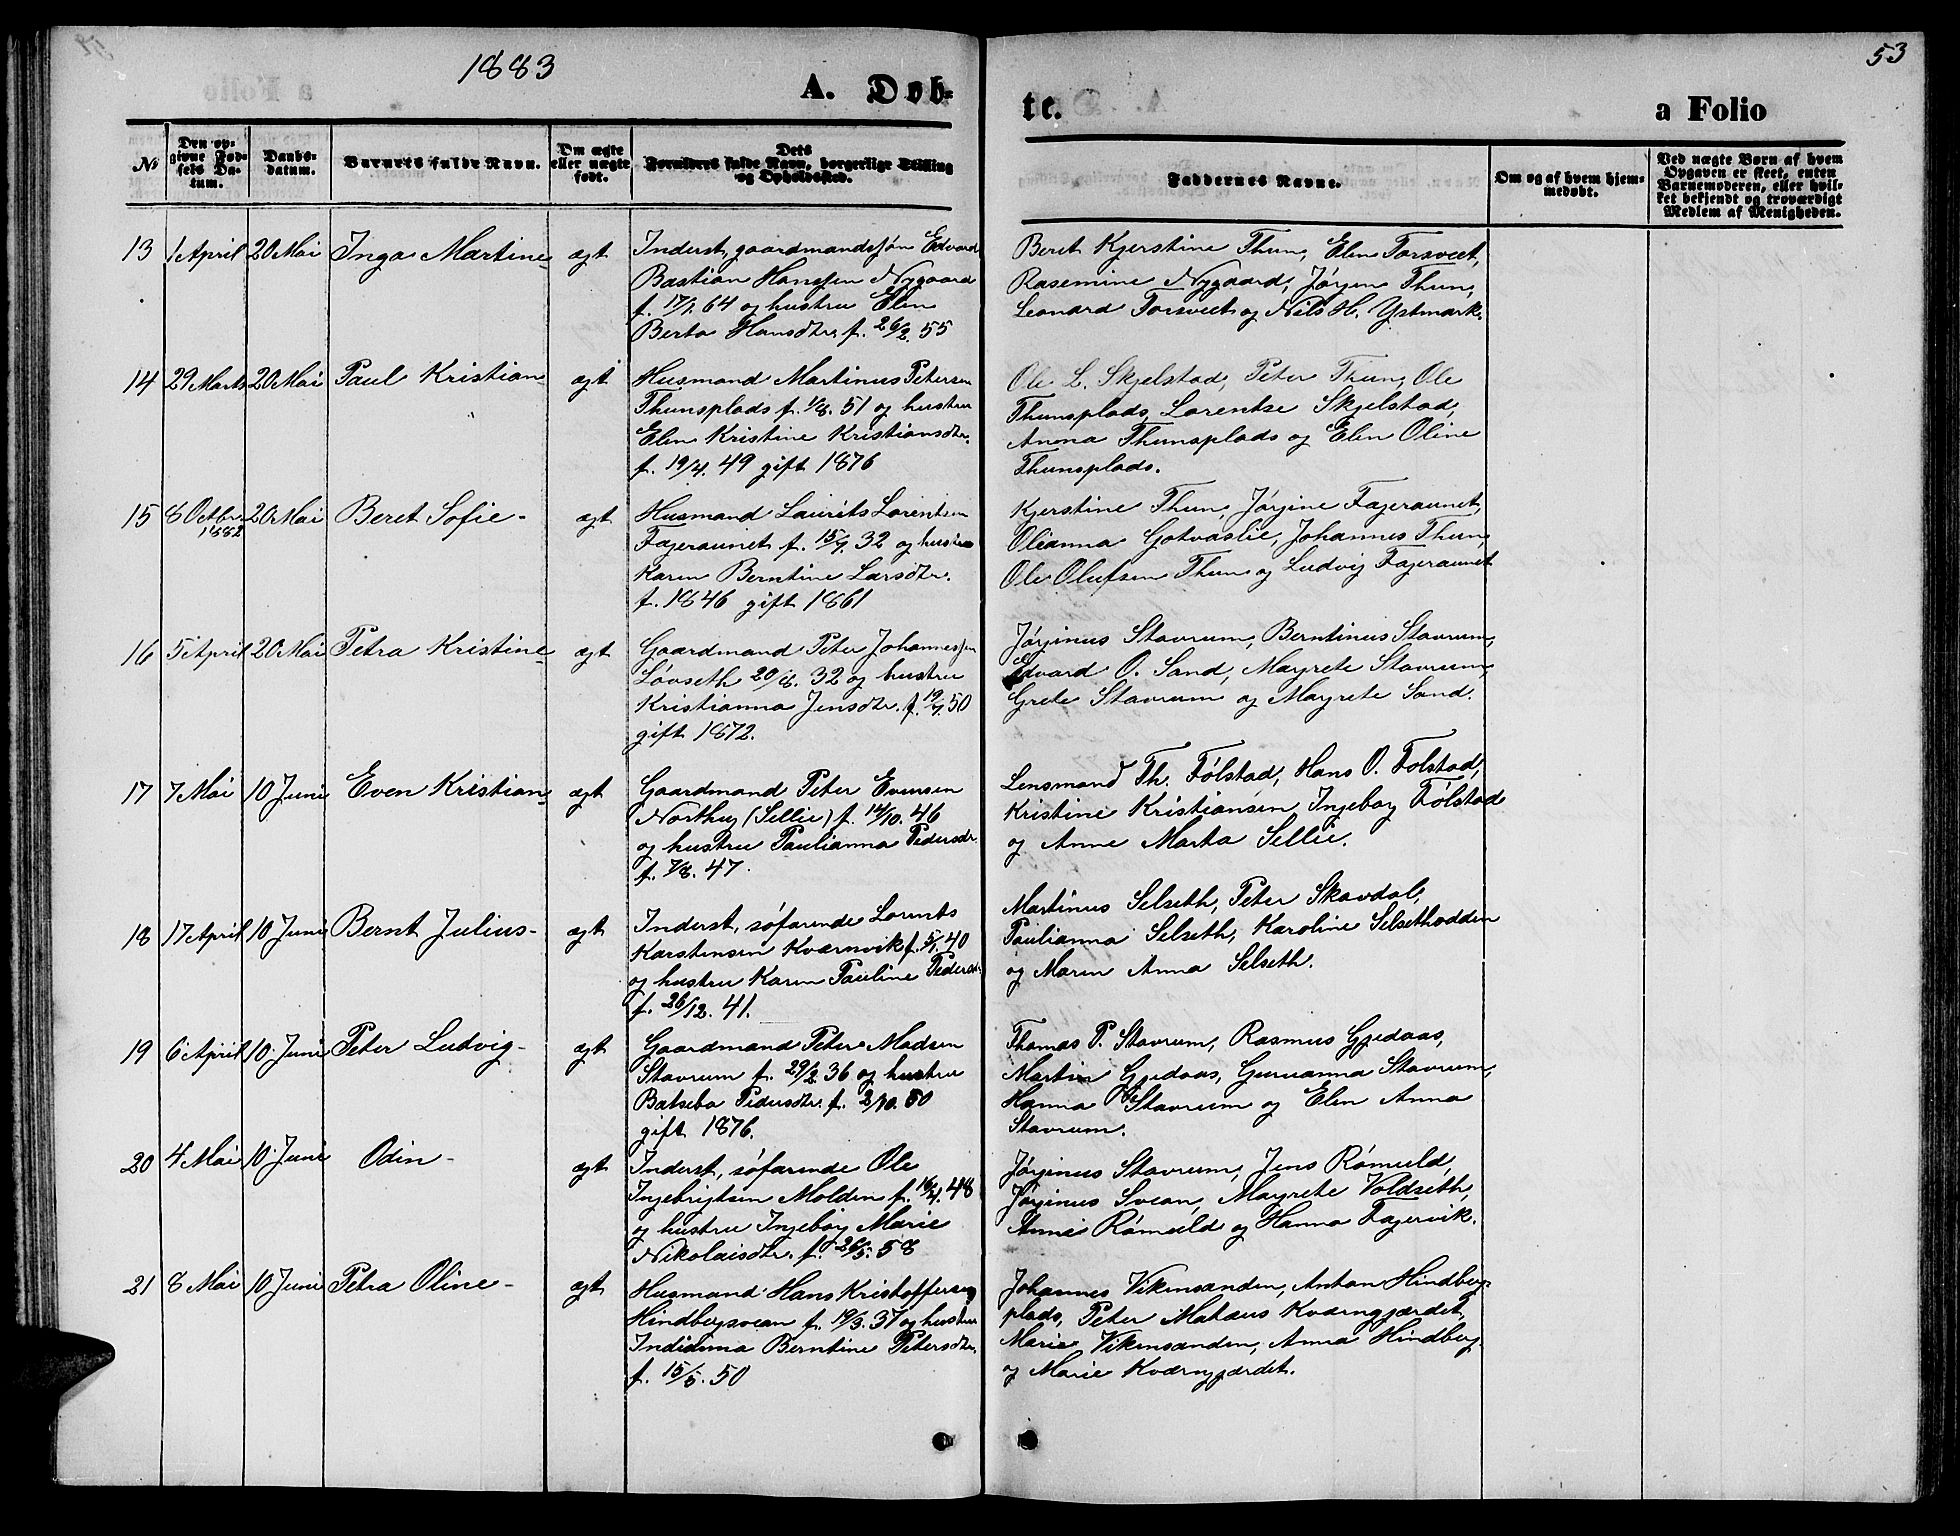 1883
A. Døb-
te.
a Folio
53
№
Den op-
givne Fød-
sels Da-
tum.
Daabs-
datum.
Barnets fulde Navn.
Om ægte
eller uægte
født.
Dets
Forældres fulde Navn, borgerlige Stilling
og Opholdssted.
Faddernes Navne.
Om og af hvem hjem-
medøbt.
Ved uægte Børn af hvem
Opgaven er skeet, enten
Barnemoderen, eller hvil-
ket bekjendt og troværdigt
Medlem af Menigheden.
13 1 April 20 Mai Inga Martine- ægt
Inderst, gaardmandssøn Edvard
Bastian Hanssen Nygaard
f. 17/7. 64 og hustru Elen
Berta Hansdtr. f. 26/2. 55
Beret Kjerstine Thun, Elen Forsveet,
Rasemine Nygaard, Jørgen Thun,
Leonard Forsveet og Nils H. Ystmark.
14 29 Marts 20 Mai Paul Kristian ægt
Husmand Martinus Petersen
Thunsplads f. 1/8. 51 og hustru
Elen Kristine Kristiansdtr.
f. 19/4. 49 gift 1876
Ole L. Skjelstad, Peter Thun, Ole
Thunsplads, Lorentse Skjelstad,
Anna Thunsplads og Elen Oline
Thunsplads.
15 8 Octbr 1882 20 Mai Beret Sofie- ægt
Husmand Laurits Lorentsen
Fageraunet f. 15/7. 32 og hustru
Karen Berntine Larsdtr.
f. 1846 gift 1861
Kjerstine Thun, Jørgine Fageraunet,
Olianna Gotvaslie, Johannes Thun,
Ole Olufsen Thun og Ludvig Fageraunet
16 5 April 20 Mai Petra Kristine- ægt
Gaardmand Peter Johannessen
Løvseth 20/8. 32 og hustru
Kristianna Jensdtr. f. 19/7. 50
gift 1872.
Jørginus Stavrum, Berntinus Stavrum,
Edvard O. Sand, Margrete Stavrum,
Grete Stavrum og Margrete Sand.
17 7 Mai 10 Juni Even Kristian- ægt
Gaardmand Peter Evensen
Northug (Sellie) f. 14/10. 46
og hustru Paulianna Pedersdr.
f. 7/8. 47.
Lensmand Th. Følstad, Hans O. Følstad,
Kristine Kristiansen, Ingeborg Følstad
og Anne Marta Sellie.
18 17 April 10 Juni Bernt Julius- ægt
Inderst, søfarende Lorents
Karstensen Kværnvik f. 5/1. 40
og hustru Karen Pauline Pedersdr.
f. 26/12. 41.
Martinus Selseth, Peter Skavdal,
Paulianna Selseth, Karoline Selsethodden
og Maren Anna Selseth.
19 6 April 10 Juni Peter Ludvig- ægt
Gaardmand Peter Madsen
Stavrum f. 29/2. 36 og hustru
Batseba Pedersdtr. f. 2/10. 50
gift 1876.
Thomas P. Stavrum, Rasmus Gjedaas,
Martin Gjedaas, Guruanna Stavrum,
Hanna Stavrum og Elen Anna
Stavrum.
20 4 Mai 10 Juni Odin- ægt
Inderst, søfarende Ole
Ingebrigtsen Molden f. 16/4. 48
og hustru Ingebor Marie
Nikolaisdtr. f. 26/5. 58
Jørginus Stavrum, Jens Rømuld,
Jørginus Svean, Margrete Voldseth,
Anne Rømuld og Hanna Fagervik.
21 8 Mai 10 Juni Petra Oline- ægt
Husmand Hans Kristoffersen
Hindbergsvean f. 19/3. 37 og hustru
Indianna Berntine Petersdtr.
f. 15/5. 50
Johannes Vikensanden, Anton Hindberg-
plads, Peter Mataus Kværngjærdet,
Marie Vikensanden, Anna Hindberg
og Marie Kværngjærdet.